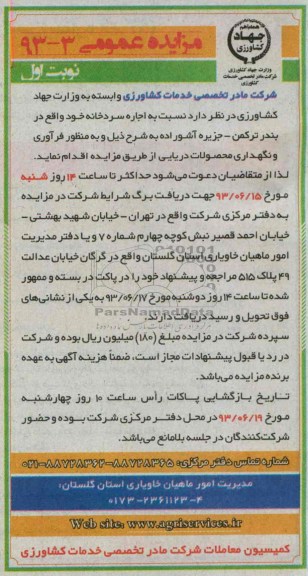 جهاد
کشاورزی
وزارت جهاد کشاورزی
شرکت مادر تخصصی خدمات کشاورزی
مزایده عمومی ۳-۹۳
نوبت اول
شرکت مادر تخصصی خدمات کشاورزی وابسته به وزارت جهاد
کشاورزی در نظر دارد نسبت به اجاره سردخانه خود واقع در
بندر ترکمن - جزیره آشوراده به شرح ذیل و به منظور فرآوری
و نگهداری محصولات دریایی از طریق مزایده اقدام نماید.
لذا از متقاضیان دعوت می‌شود حداکثر تا ساعت ۱۴ روز شنبه
مورخ ۹۳/۰۶/۱۵ جهت دریافت برگ شرایط شرکت در مزایده
به دفتر مرکزی شرکت واقع در تهران - خیابان شهید بهشتی -
خیابان احمد قصیر نبش کوچه چهارم شماره ۷ و یا دفتر مدیریت
امور ماهیان خاویاری استان گلستان واقع در گرگان خیابان عدالت
۴۹ پلاک ۵۱۵ مراجعه و پیشنهاد خود را در پاکت در بسته و ممهور
شده تا ساعت ۱۴ روز دوشنبه مورخ ۹۳/۰۶/۱۷ به یکی از نشانی‌های
فوق تحویل و رسید دریافت دارند.
سپرده شرکت در مزایده مبلغ (۱۸۰) میلیون ریال بوده و شرکت
در رد یا قبول پیشنهادات مجاز است، ضمناً هزینه آگهی به عهده
برنده مزایده می‌باشد.
تاریخ بازگشایی پاکات رأس ساعت ۱۰ روز چهارشنبه
مورخ ۹۳/۰۶/۱۹ در محل دفتر مرکزی شرکت بوده و حضور
شرکت‌کنندگان در جلسه بلامانع می‌باشد.
شماره تماس دفتر مرکزی: ۸۸۷۲۸۳۶۵-۸۸۷۲۸۳۶۲-۰۲۱
مدیریت امور ماهیان خاویاری استان گلستان:
۰۱۷۳-۲۳۶۱۱۲۳-۴
Web site: www.agriservices.ir
کمیسیون معاملات شرکت مادر تخصصی خدمات کشاورزی